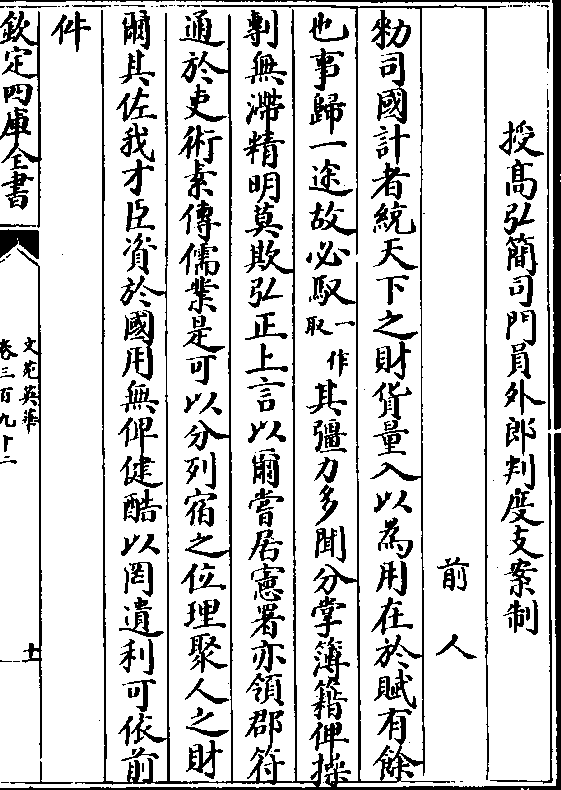 授髙弘簡司門員外郎判度支案制
前人
勑司國計者統天下之財貨量入以為用在於賦有餘
也事歸一途故必馭一作取其彊力多聞分掌簿籍俾操
剸無滯精明莫欺弘正上言以爾嘗居憲署亦領郡符
通於吏術素傳儒業是可以分列宿之位理聚人之財
爾其佐我才臣資於國用無俾健酷以罔遺利可依前
件
欽定四庫全書
文苑英華
卷三百九十二
十一